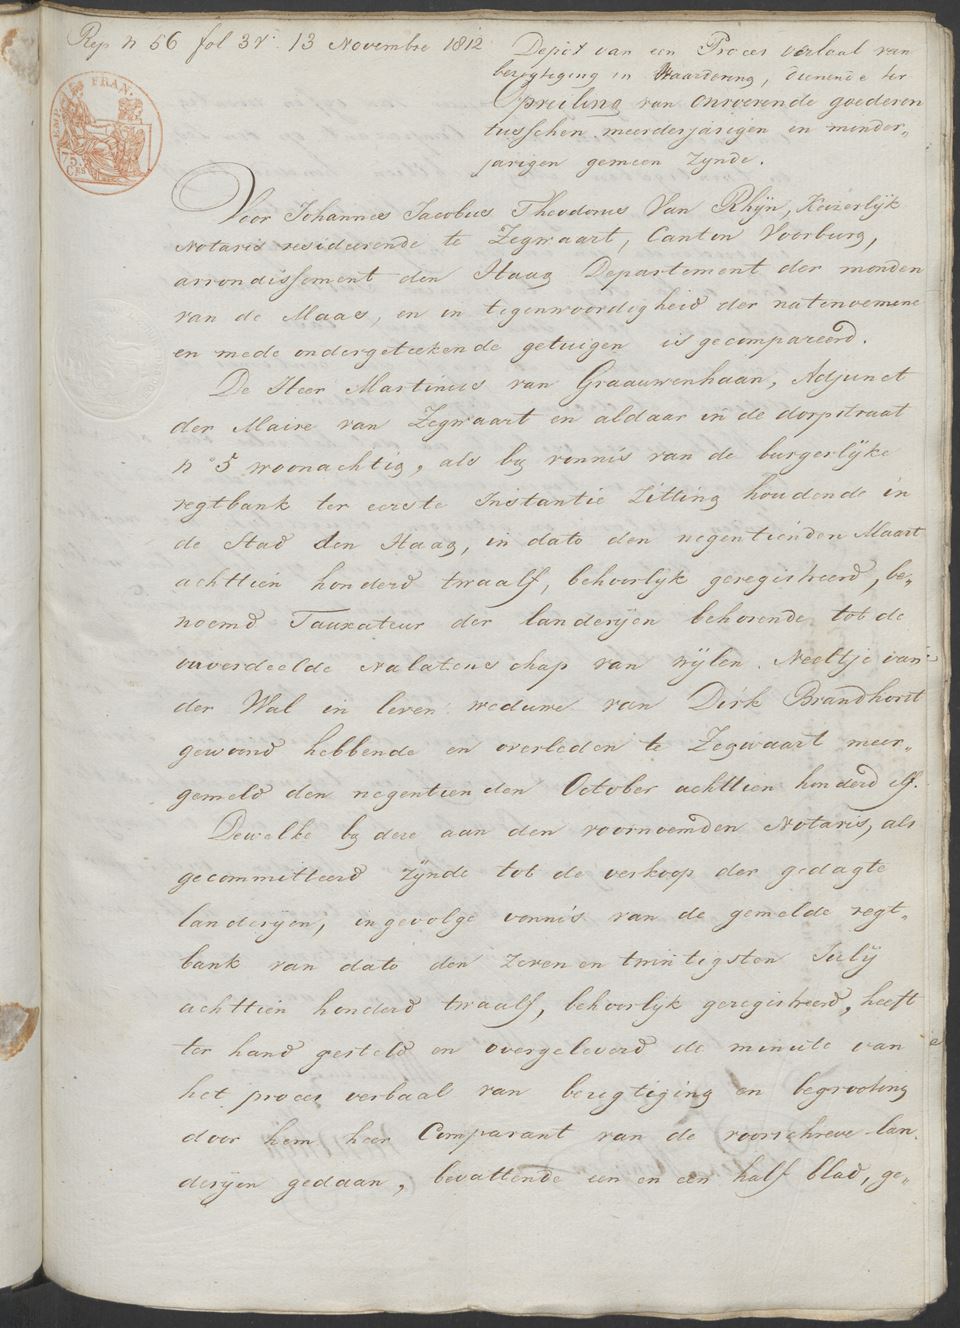 Rep n 56 fol 3v. 13 Novembre 1812
Depot van een Proces verbaal van
bezigtiging en Waardering, dienende ter
Opveiling van onroerende goederen
tusschen meerderjarigen en minder„
jarigen gemeen zynde.
EMP. FRAN.
75
CES
Voor Johannes Jacobus Theodorus Van Rhÿn, Keizerlÿk
Notaris resideerende te Zegwaart, Canton Voorburg,
arrondissement den Haag Departement der monden
van de Maas, en in tegenwoordigheid der natenoemene
en mede ondergeteekende getuigen is gecompareerd.
De Heer Martinus van Graauwenhaan, Adjunct
der Maire van Zegwaart en aldaar in de dorpstraat
n° 5 woonachtig, als by vonnis van de burgerlÿke
regtbank ter eerste Instantie Zitting houdende in
de Stad den Haag, in dato den negentienden Maart
achttien honderd twaalf, behoorlÿk geregistreerd, be„
noemd Tauxateur der landerÿen behorende tot de
onverdeelde Nalatenschap van wÿlen Neeltje van
der Wal in leven weduwe van Dirk Brandhorst
gewoond hebbende en overleden te Zegwaart meer„
gemeld den negentienden October achttien honderd elf.
Dewelke by deze aan den voornoemden Notaris, als
gecommitteerd zÿnde tot de verkoop der gedagte
landerÿen, ingevolge vonnis van de gemelde regt„
bank van dato den zeven en twintigsten Julÿ
achttien honderd twaalf, behoorlÿk geregistreerd, heeft
ter hand gesteld en overgeleverd de minute van
het proces verbaal van bezigtiging en begrooting
door hem heer Comparant van de voorschreve lan„
derÿen gedaan, bevattende een en een half blad, ge„